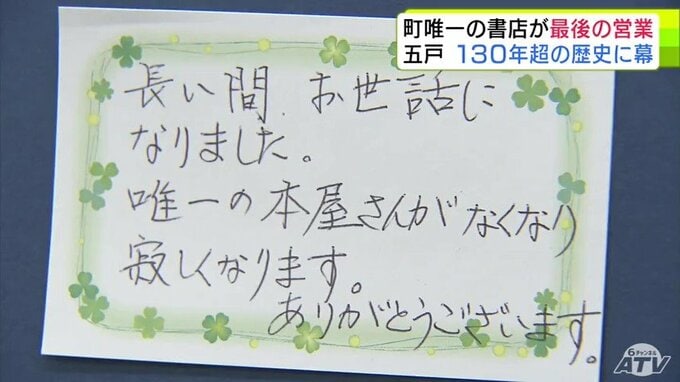 町唯一の書店が最後の営業
五戸 130年超の歴史に幕
長い間、お世話に
なりました。
唯一の本屋さんがなくなり
寂しくなります。
ありがとうございます。
6チャンネル
ATV